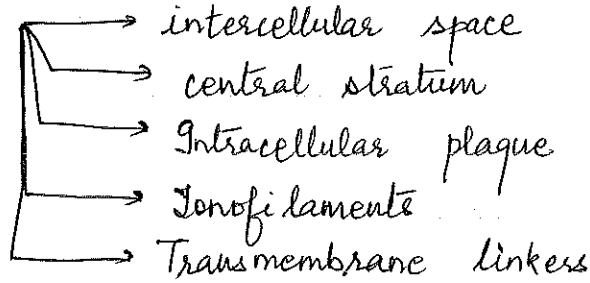 intercellular space
central stratum
Intracellular plaque
Tonofilaments
Transmembrane linkers